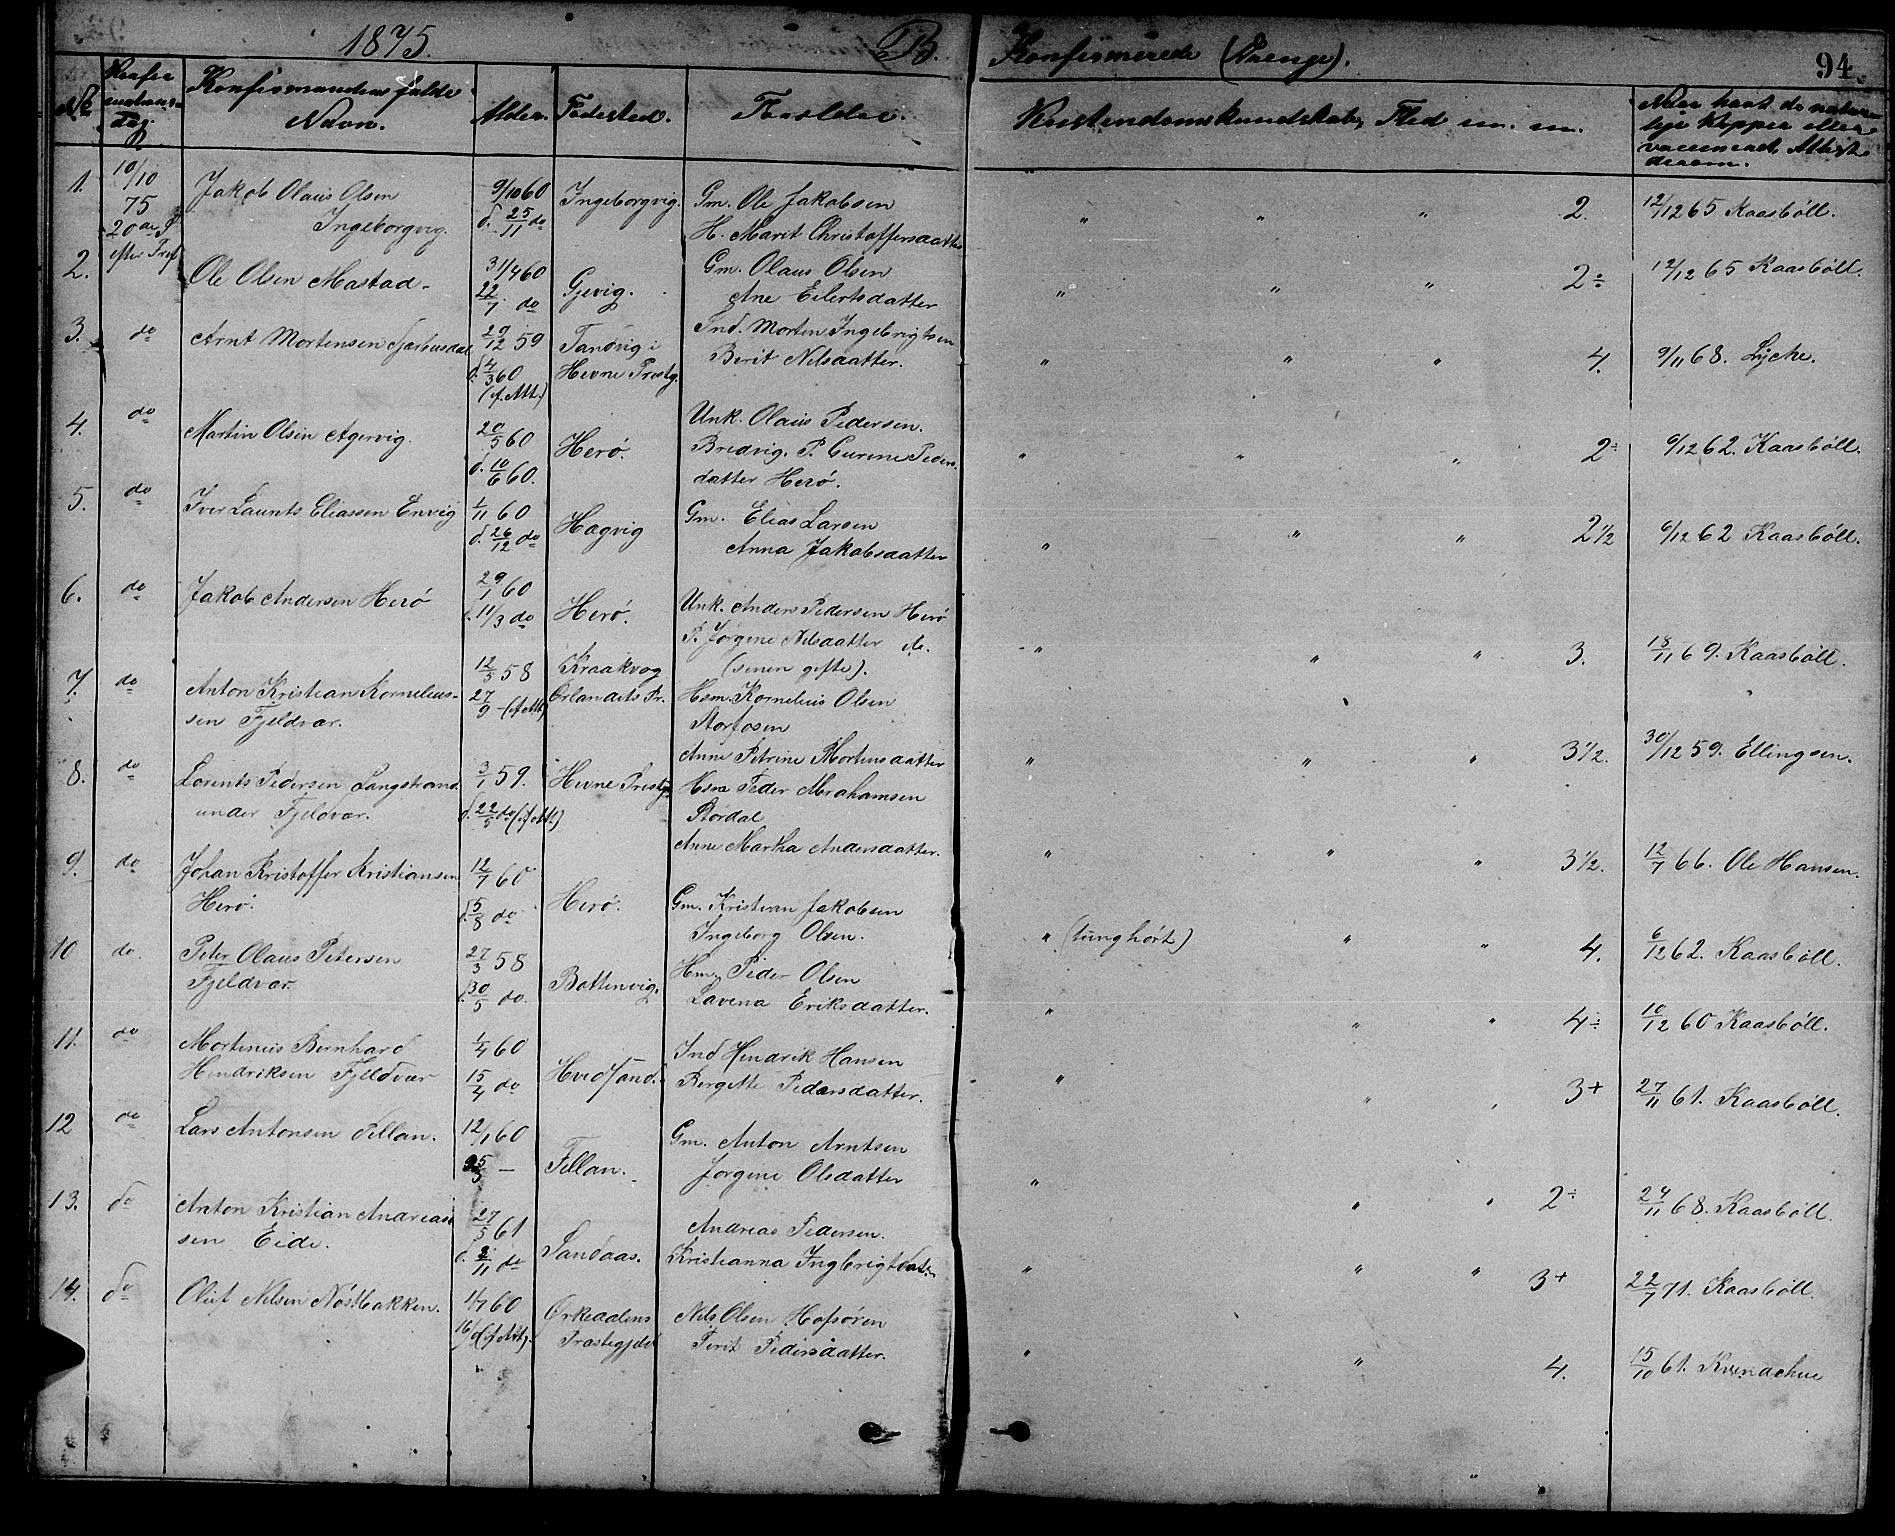 1875.
B.
Konfirmerede (Drenge).
94.
No
Konfir
mations-
dag.
Konfirmandens fulde
Navn.
Alder.
Fødested.
Forældre.
Kristendomskundskab, Flid m. m.
Naar havt de natur-
lige Kopper eller
vaccineret, Attest
derom.
1. 10/10 75 Jakob Olaus Olsen 9/10 60 Ingeborgvig. Gm. Ole Jakobsen " " " 2. 12/12 65 Kaasböll.
20de S. Ingeborgvig. d. 25/11 do H. Marit Christoffersdatter
efter Tref.
2. Ole Olsen Mastad. 31/4 60 Gjevig. Gm. Olaus Olsen " " " 2÷ 12/12 65 Kaasböll.
22/7 do Ane Eilertsdatter
3. do Arnt Mortensen 29/12 59 Tanvig i Ind. Morten Ingebrigtsen " " " 4. 9/11 68. Lyche.
d. 4/3 60 Hevne Prestg. Berit Nilsdatter.
(if. Att.)
4. do Martin Olsen Agervig. 20/5 60 Herø. Unk. Olaus Pedersen. " " " 2÷ 6/12 62. Kaasböll.
d. 10/6 60. Bredvig. P. Gurine Peders-
datter Herø.
5. do Iver Launts Eliassen Envig 1/11 60 Hagvig Gm. Elias Larsen " " " 2 1/2 6/12 62 Kaasböll.
d. 26/12 do Anna Jakobsdatter
6. do Jakob Andersen Herø 29/1 60 Herø. Unk. Anders Pedersen Herø " " " 3. 18/11 69. Kaasböll.
d. 11/3 do P. Jørgine Nilsdatter do.
(senere gifte).
7. do Anton Kristian Kornelius- 12/5 58 Kraakvog Hsm. Kornelius Olsen " " " 3 1/2. 30/12 59. Ellingsen.
sen Fjeldvær. 27/9 - (if Att) Ørlandets Pr. Storfosen
Anne Petrine Mortensdatter
8. do Lorents Pedersen Langstrand 3/1 59. Hevne Prestg. Hsm Peder Abrahamsen " " " 3 1/2. 12/7 66. Ole Hansen.
under Fjeldvær. d. 22/5 do (if Att) Stordal
Anne Martha Andersdatter.
9. do Johan Kristoffer Kristiansen 12/7 60 Herø. Gm. Kristian Jakobsen " (tunghørt) " " 4. 6/12 62. Kaasböll.
Herø. d. 5/8 do Ingeborg Olsen.
10 do. Peter Olaus Petersen 27/3 58 Battenvig. Hm. Peder Olsen " " " 4÷ 10/12 60 Kaasböll.
Fjeldvær. d. 30/5 do. Lavena Eriksdatter.
11. do Mortinus Bernhard 1/4 60 Hvidsand. Ind Hendrik Hansen " " " 3+ 27/11 61. Kaasböll.
Hendriksen Fjeldvær 15/4 do Bergitte Pedersdatter.
12 do Lars Antonsen Fillan. 12/1 60 Fillan. Gm. Anton Arntsen " " " 2÷ 24/11 68. Kaasböll.
25/3 — Jørgine Olsdatter
13. do Anton Kristian Andreas- 27/5 61 Sandaas. Andreas Pedersen. " " " 3+ 22/7 71. Kaasböll.
sen Eide. d. 2/11 do Kristianna Ingbrigtsdat.
14. do Oluf Nilsen Nøstbakken. 1/7 60 Ørkedalens Nils Olsen Hofsøren " " 4. 15/10 61.
16/9 (if Att). Præstegjeld Berit Pedersdatter.